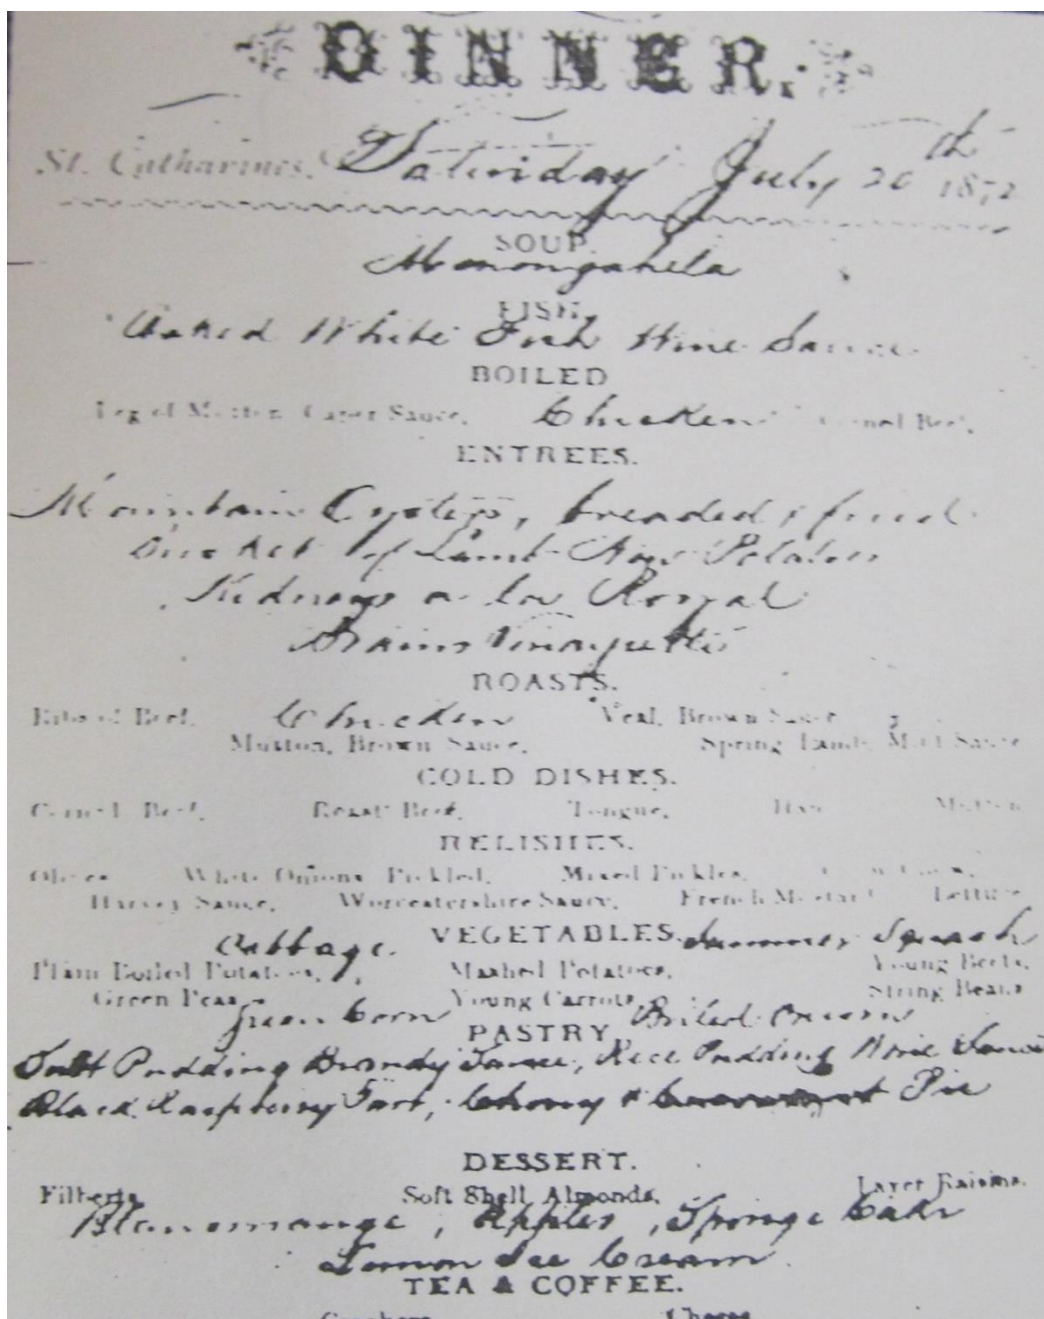 DINNER.
St. Catharines, Saturday July 20th 1872
SOUP.
Monongahela
FISH.
Baked White Fish Wine Sauce
BOILED
Leg of Mutton Caper Sauce. Chicken Corned Beef.
ENTREES.
Mountain Oysters, breaded & fried
of Lamb New Potatoes
Kidneys a la Royal
Brains Vinaigrette
ROASTS.
Ribs of Beef. Chicken Veal, Brown Sauce
Mutton, Brown Sauce. Spring Lamb, Mint Sauce
COLD DISHES.
Corned Beef. Roast Beef. Tongue. Ham Mutton
RELISHES.
Olives White Onions Pickled. Mixed Pickles.
Harvey Sauce. Worcestershire Sauce. French Mustard Lettuce
Cabbage. VEGETABLES. Summer Squash
Plain Boiled Potatoes, Mashed Potatoes. Young Beets.
Green Peas Young Carrots String Beans
Green Corn PASTRY Boiled Onions
Pudding Brandy Sauce, Rice Pudding Wine Sauce
Black Raspberry Tart, Cherry & Pie
DESSERT.
Filberts Soft Shell Almonds. Layer Raisins.
Blancmange, Apples, Sponge Cake
Lemon Ice Cream.
TEA & COFFEE.